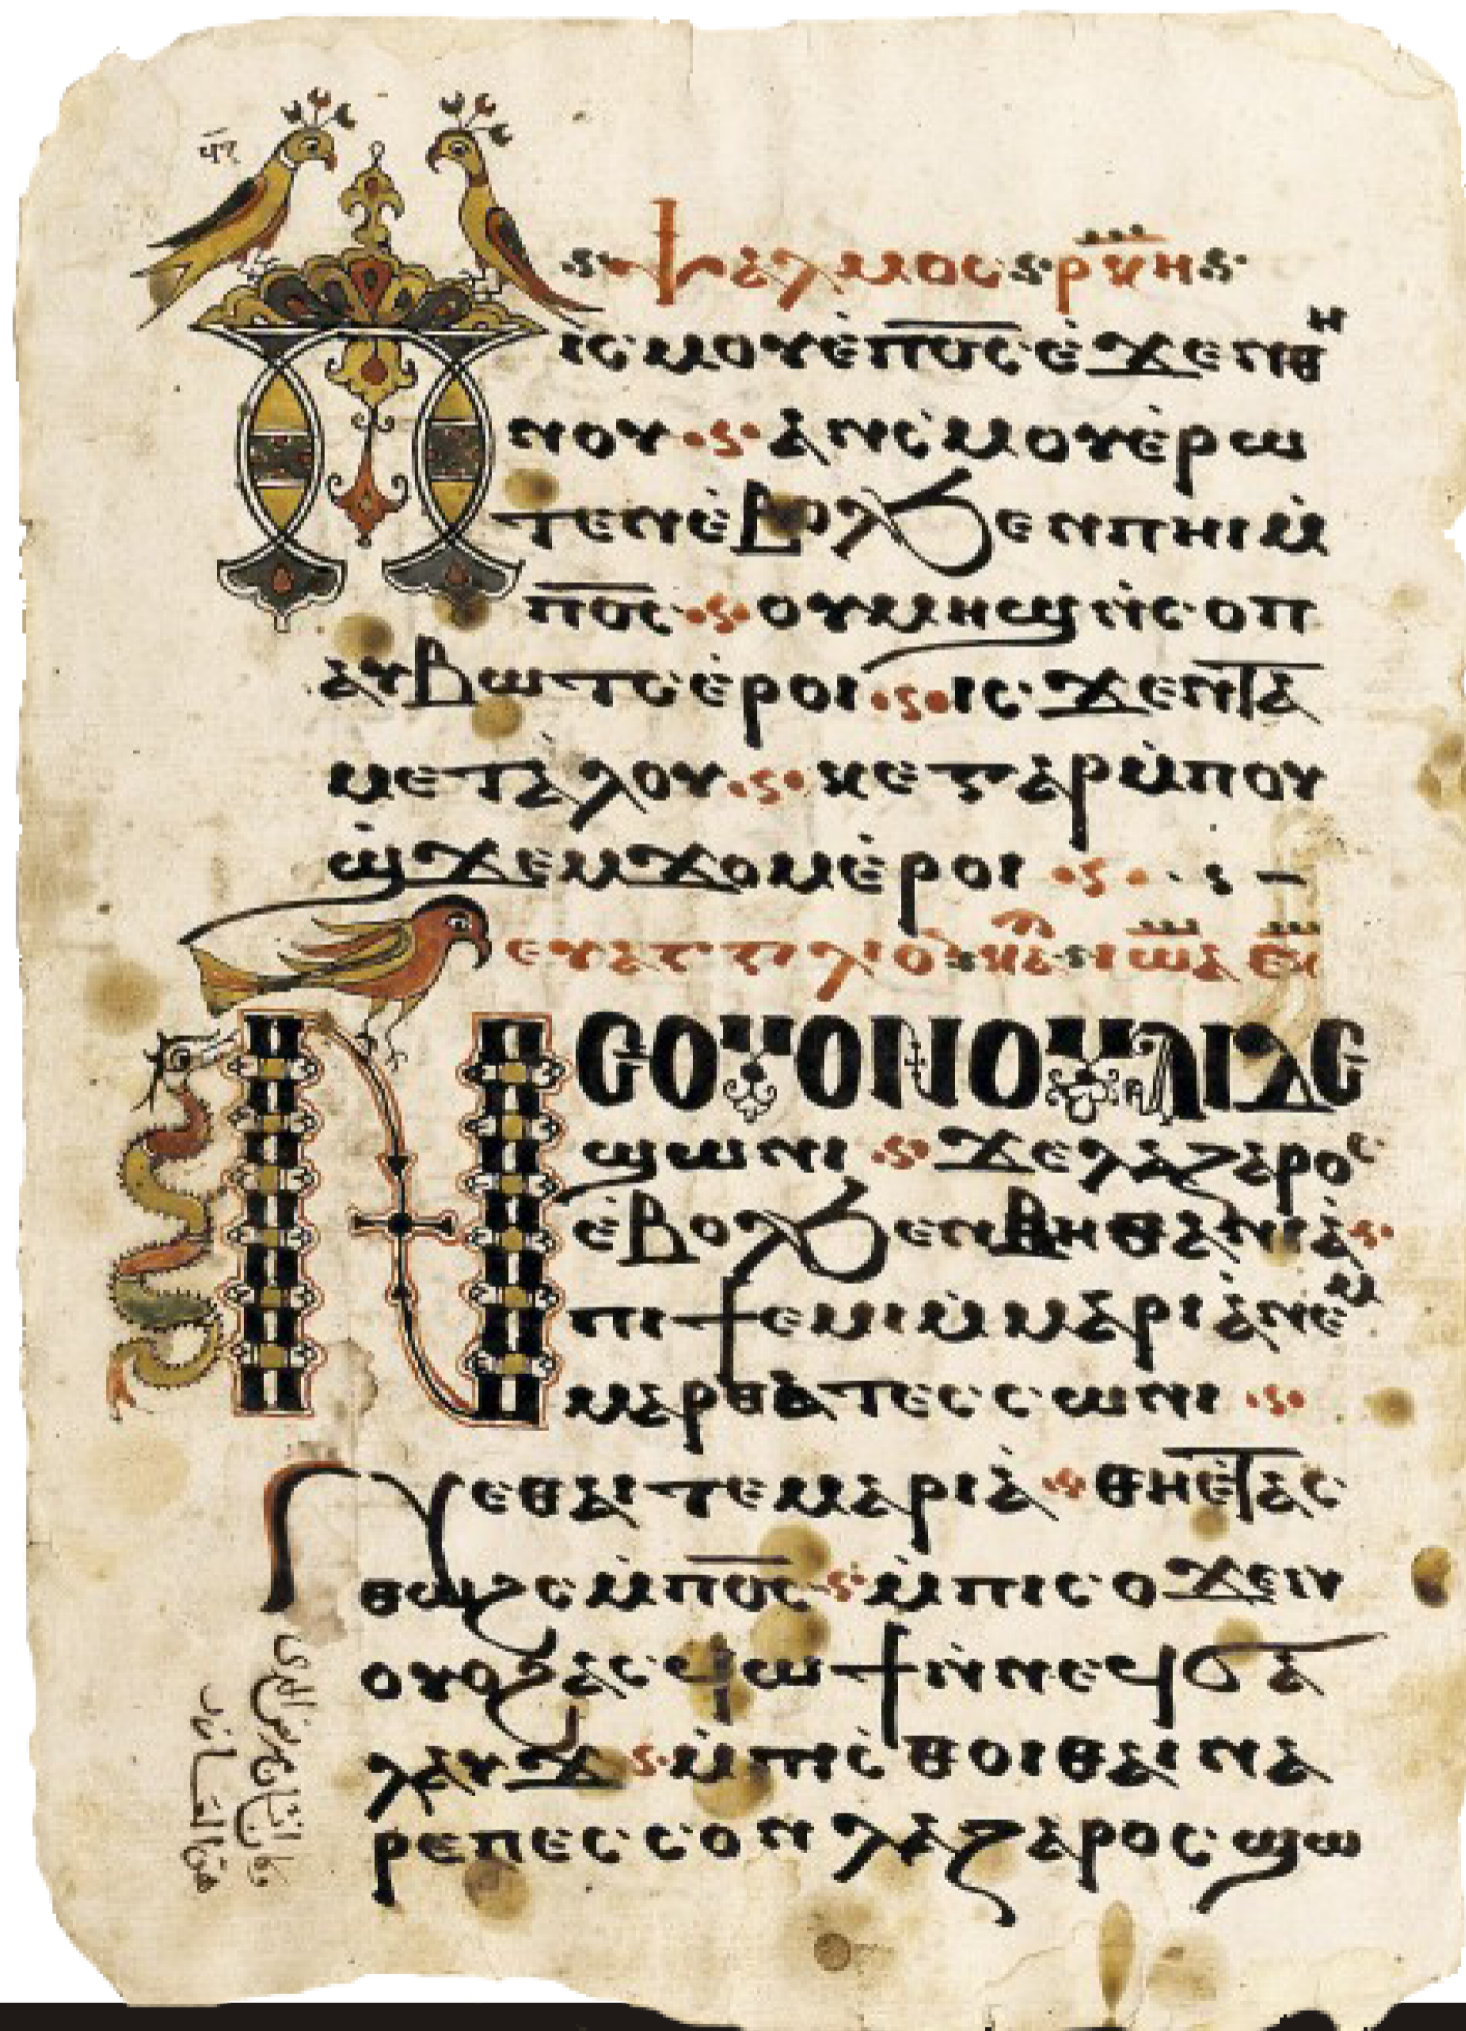 ⲯⲁⲗⲙⲟⲥ ⲣⲕⲏ
Ⲡⲓⲥⲙⲟⲩ ⲉ̀ⲡ̅ⲟ̅ⲥ̅ ⲉ̀ϫⲉⲛⲑⲏ
ⲛⲟⲩ ⲁⲛⲥ̀ⲙⲟⲩ ⲉ̀ⲣⲱ
ⲧⲉⲛ ⲉ̀ⲃⲟⲗϧⲉⲛ ⲡⲏⲓ ⲙ̀
ⲡ̅ⲟ̅ⲥ̅ ⲟⲩⲙⲏϣ ⲛ̀ⲥⲟⲡ
ⲁⲩⲃⲱⲧⲥ ⲉ̀ⲣⲟⲓ ⲓⲥϫⲉⲛ ⲧⲁ
ⲙⲉⲧⲁ̀ⲗⲟⲩ ⲕⲉⲅⲁⲣ ⲙ̀ⲡⲟⲩ
ϣ̀ϫⲉⲙϫⲟⲙ ⲉ̀ⲣⲟⲓ
ⲉⲩⲁⲅⲅⲗⲓⲟ
Ⲛⲉ ⲟⲩⲟⲛ ⲟⲩⲁⲓ ⲇⲉ
ϣⲱⲛⲓ ϫⲉ ⲗⲁⲍⲁⲣⲟⲥ
ⲉ̀ⲃⲟⲗϧⲉⲛ ⲃⲏⲑⲁⲛⲓⲁ̀
ⲡⲓϯⲉⲙⲓ ⲙ̀ⲙⲁⲣⲓⲁ̀ ⲛⲉⲙ
ⲙⲁⲣⲑⲁ ⲧⲉⲥⲥⲱⲛⲓ
Ⲛⲉ ⲑⲁⲓ ⲧⲉ ⲙⲁⲣⲓⲁ̀ ⲑⲏⲉ̀ⲧⲁⲥ
ⲑⲱϩⲥ ⲙ̀ⲡ̅ⲟ̅ⲥ̅ ⲙ̀ⲡⲓⲥⲟϫⲉⲛ
ⲟⲩⲟϩ ⲁⲥϥⲱϯ ⲛ̀ⲛⲉϥϭⲁ
ⲗⲁⲩϫ ⲙ̀ⲡⲓⲥ̀ⲑⲟⲓ ⲑⲁⲓ ⲛⲁ
ⲣⲉ ⲡⲉⲥⲥⲟⲛ ⲗⲁⲍⲁⲣⲟⲥ ϣⲱ